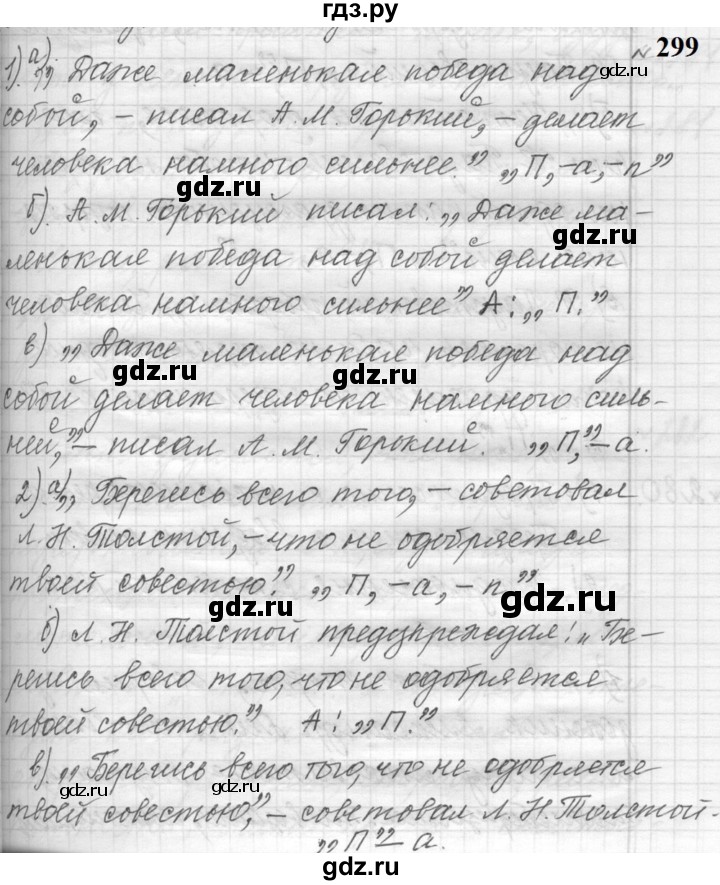 гдз.ру
№ 299
1). а) „Даже маленькая победа над
собой, – писал А. М. Горький, – делает
человека намного сильнее." „П, – а, – п"
б). А. М. Горький писал: „Даже ма-
ленькая победа над собой делает
человека намного сильнее" А: „П."
в) „Даже маленькая победа над
собой делает человека намного силь-
ней," – писал А. М. Горький. „П," – а.
2). а) „Берегись всего того, – советовал
Л. Н. Толстой, – что не одобряется
твоей совестью." „П, – а, – п."
б) Л. Н. Толстой предупреждал: „Бе-
регись всего того, что не одобряется
твоей совестью." А: „П."
в) „Берегись всего того, что не одобряется
твоей совестью," – советовал Л. Н. Толстой.
„П" – а.
gdz.ru
gdz.ru
gdz.ru
gdz.ru
gdz.ru
gdz.ru
gdz.ru
gdz.ru
gdz.ru
gdz.ru
gdz.ru
gdz.ru
gdz.ru